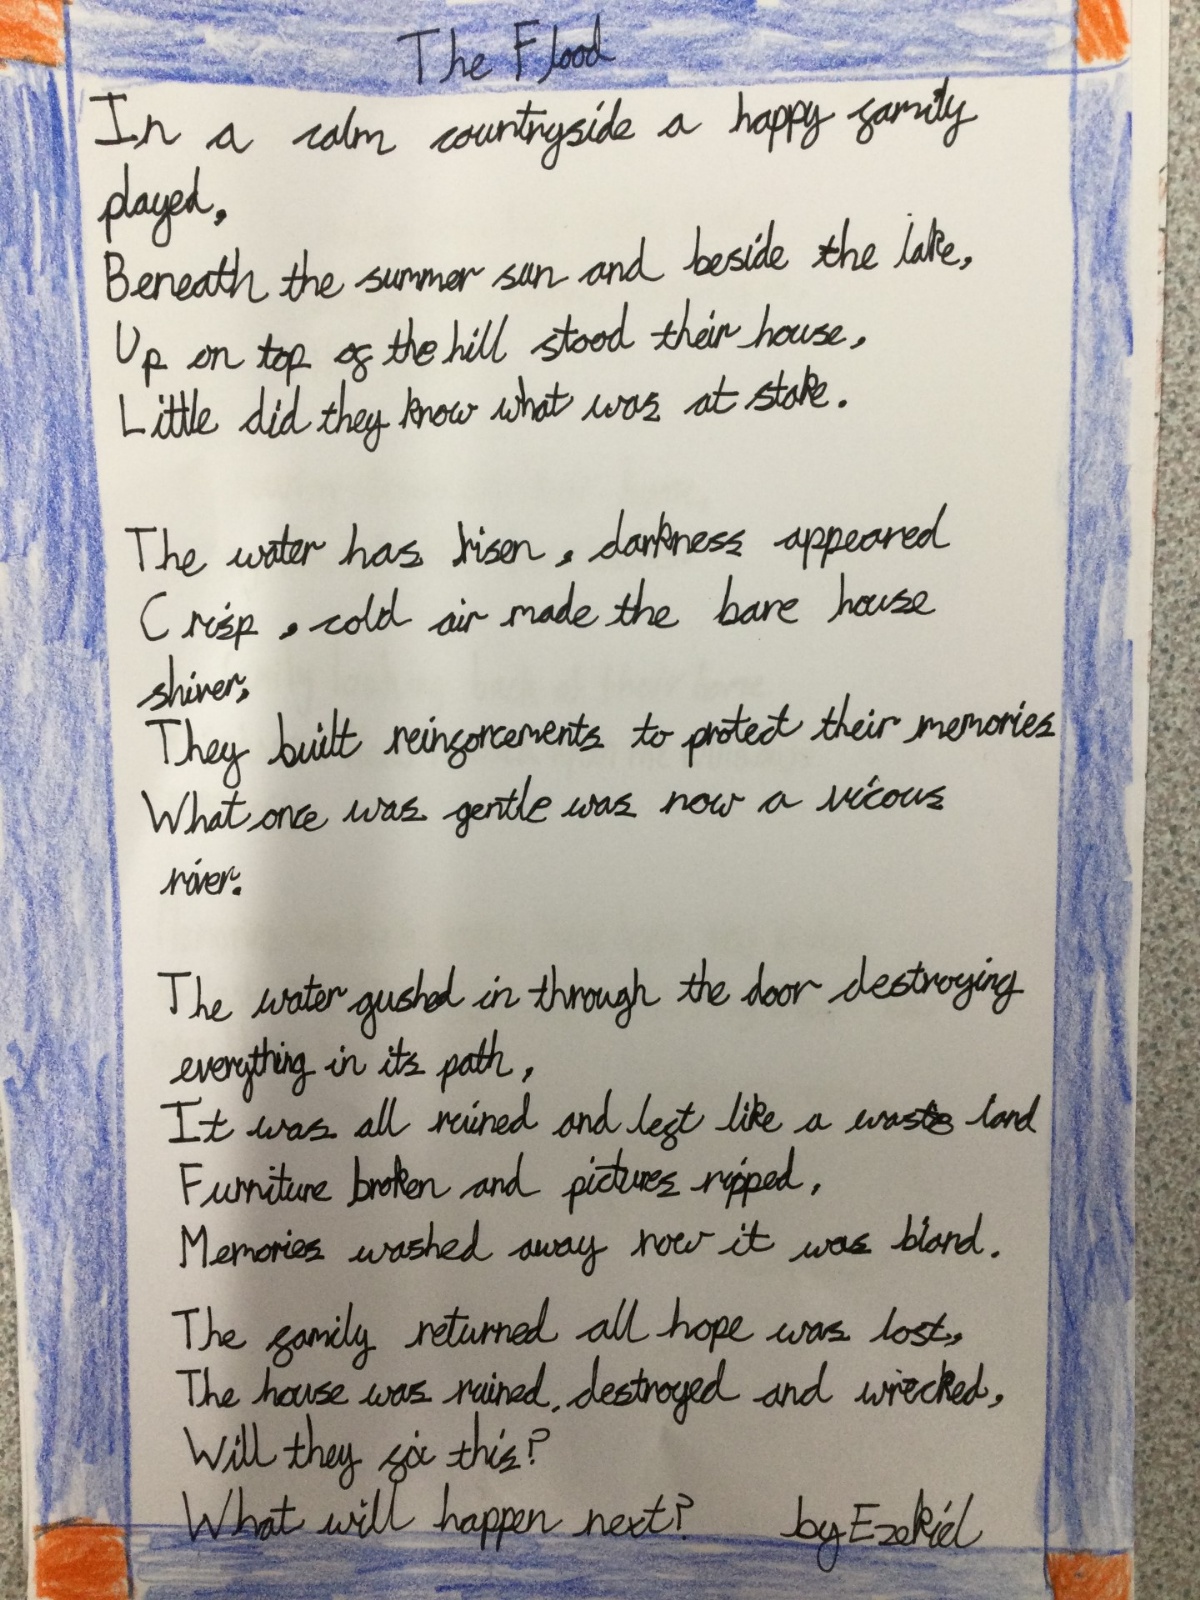 The Flood
In a calm countryside a happy family
played,
Beneath the summer sun and beside the lake,
Up on top of the hill stood their house,
Little did they know what was at stake.
The water has risen, darkness appeared
Crisp, cold air made the bare house
shiver,
They built reinforcements to protect their memories
What once was gentle was now a vicous
river.
The water gushed in through the door destroying
everything in its path,
It was all ruined and left like a waste land
Furniture broken and pictures ripped,
Memories washed away now it was bland.
The family returned all hope was lost,
The house was ruined, destroyed and wrecked,
Will they fix this?
What will happen next? by Ezekiel